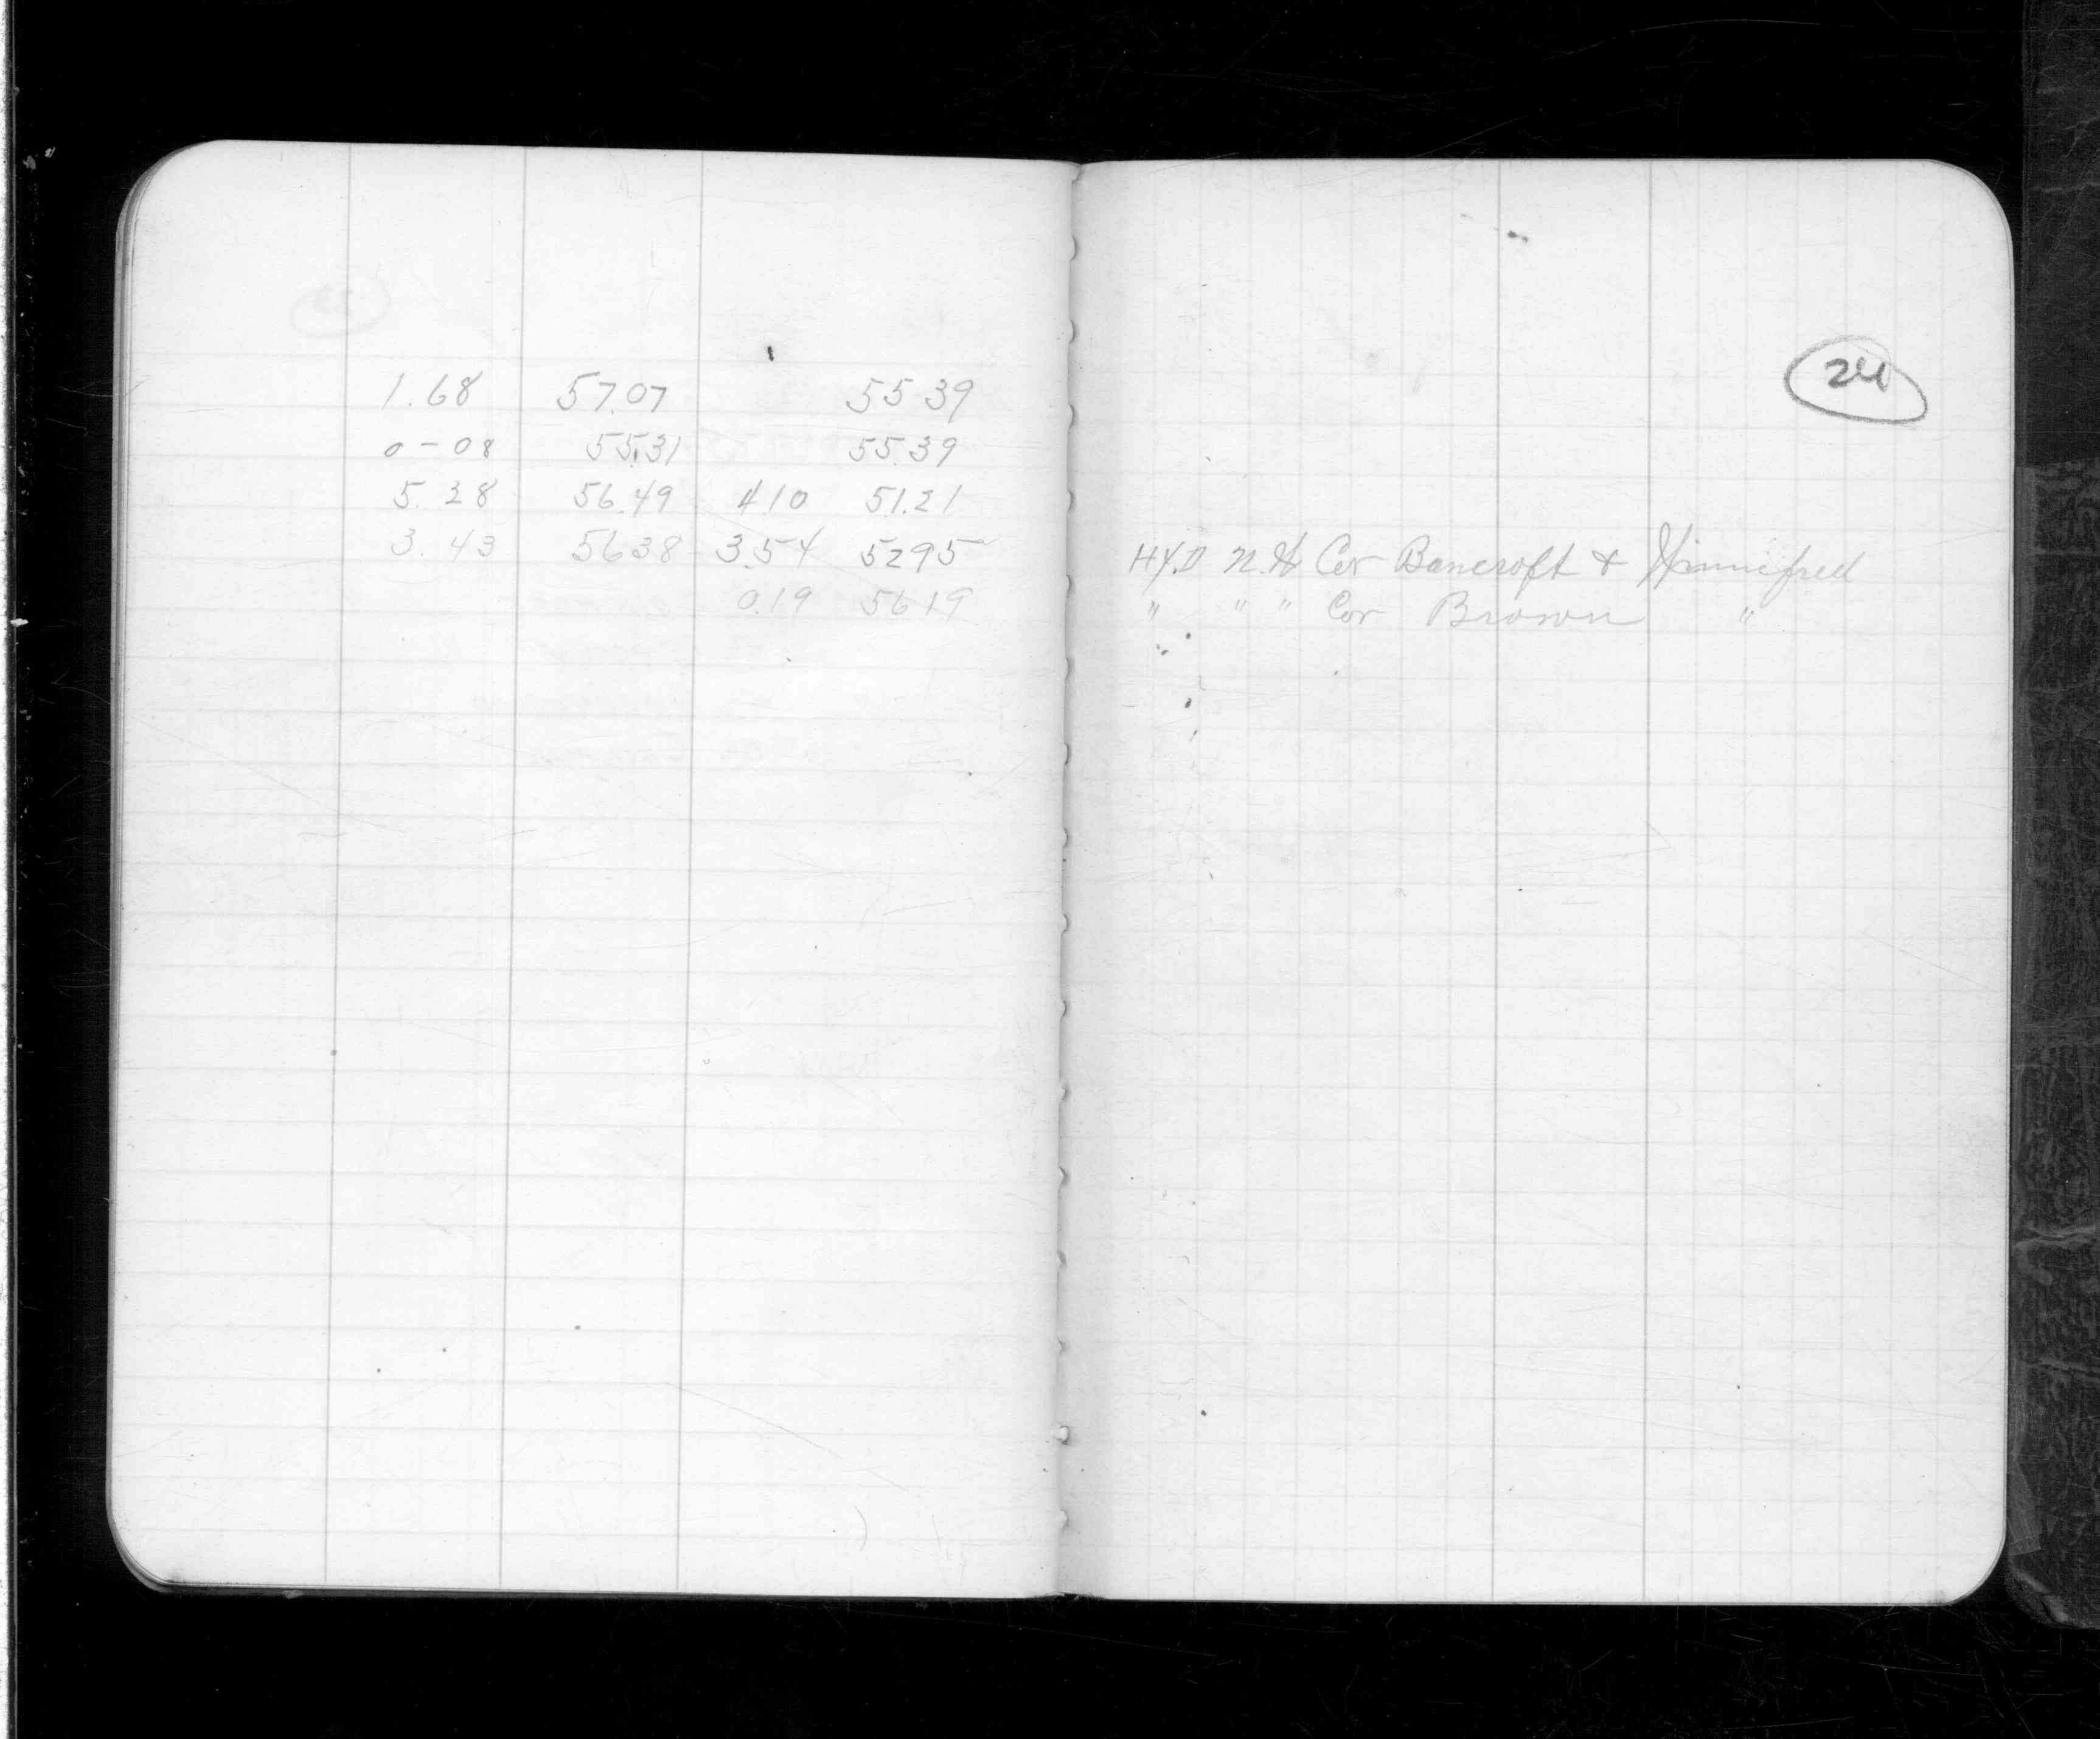 1.68 57.07 55 39
0-08 55.31 55.39
5.28 56.49 4 10 51.21
3.43 56 38 3.54 52 95
0.19 56 19
24
HYD N.W Cor Bancroft & Winnifred
" " " Cor Brown "